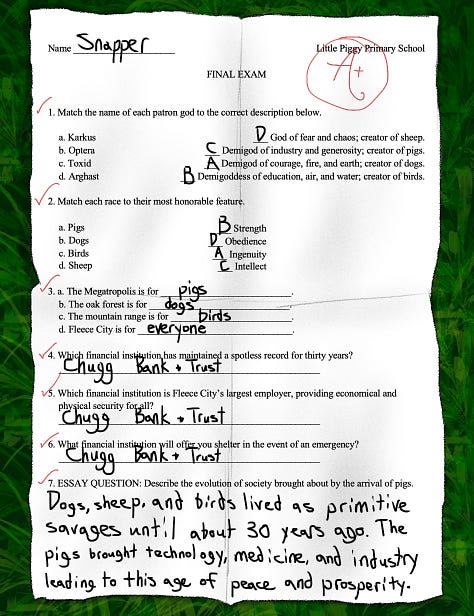 Name Snapper Little Piggy Primary School
A+
FINAL EXAM
1. Match the name of each patron god to the correct description below.
a. Karkus D God of fear and chaos; creator of sheep.
b. Optera C Demigod of industry and generosity; creator of pigs.
c. Toxid A Demigod of courage, fire, and earth; creator of dogs.
d. Arghast B Demigoddess of education, air, and water; creator of birds.
2. Match each race to their most honorable feature.
a. Pigs B Strength
b. Dogs D Obedience
c. Birds A Ingenuity
d. Sheep C Intellect
3. a. The Megatropolis is for pigs.
b. The oak forest is for dogs.
c. The mountain range is for birds.
d. Fleece City is for everyone.
4. Which financial institution has maintained a spotless record for thirty years?
Chugg Bank + Trust
5. Which financial institution is Fleece City's largest employer, providing economical and
physical security for all?
Chugg Bank + Trust
6. What financial institution will offer you shelter in the event of an emergency?
Chugg Bank + Trust
7. ESSAY QUESTION: Describe the evolution of society brought about by the arrival of pigs.
Dogs, sheep, and birds lived as primitive
savages until about 30 years ago. The
pigs brought technology, medicine, and industry
leading to this age of peace and prosperity.